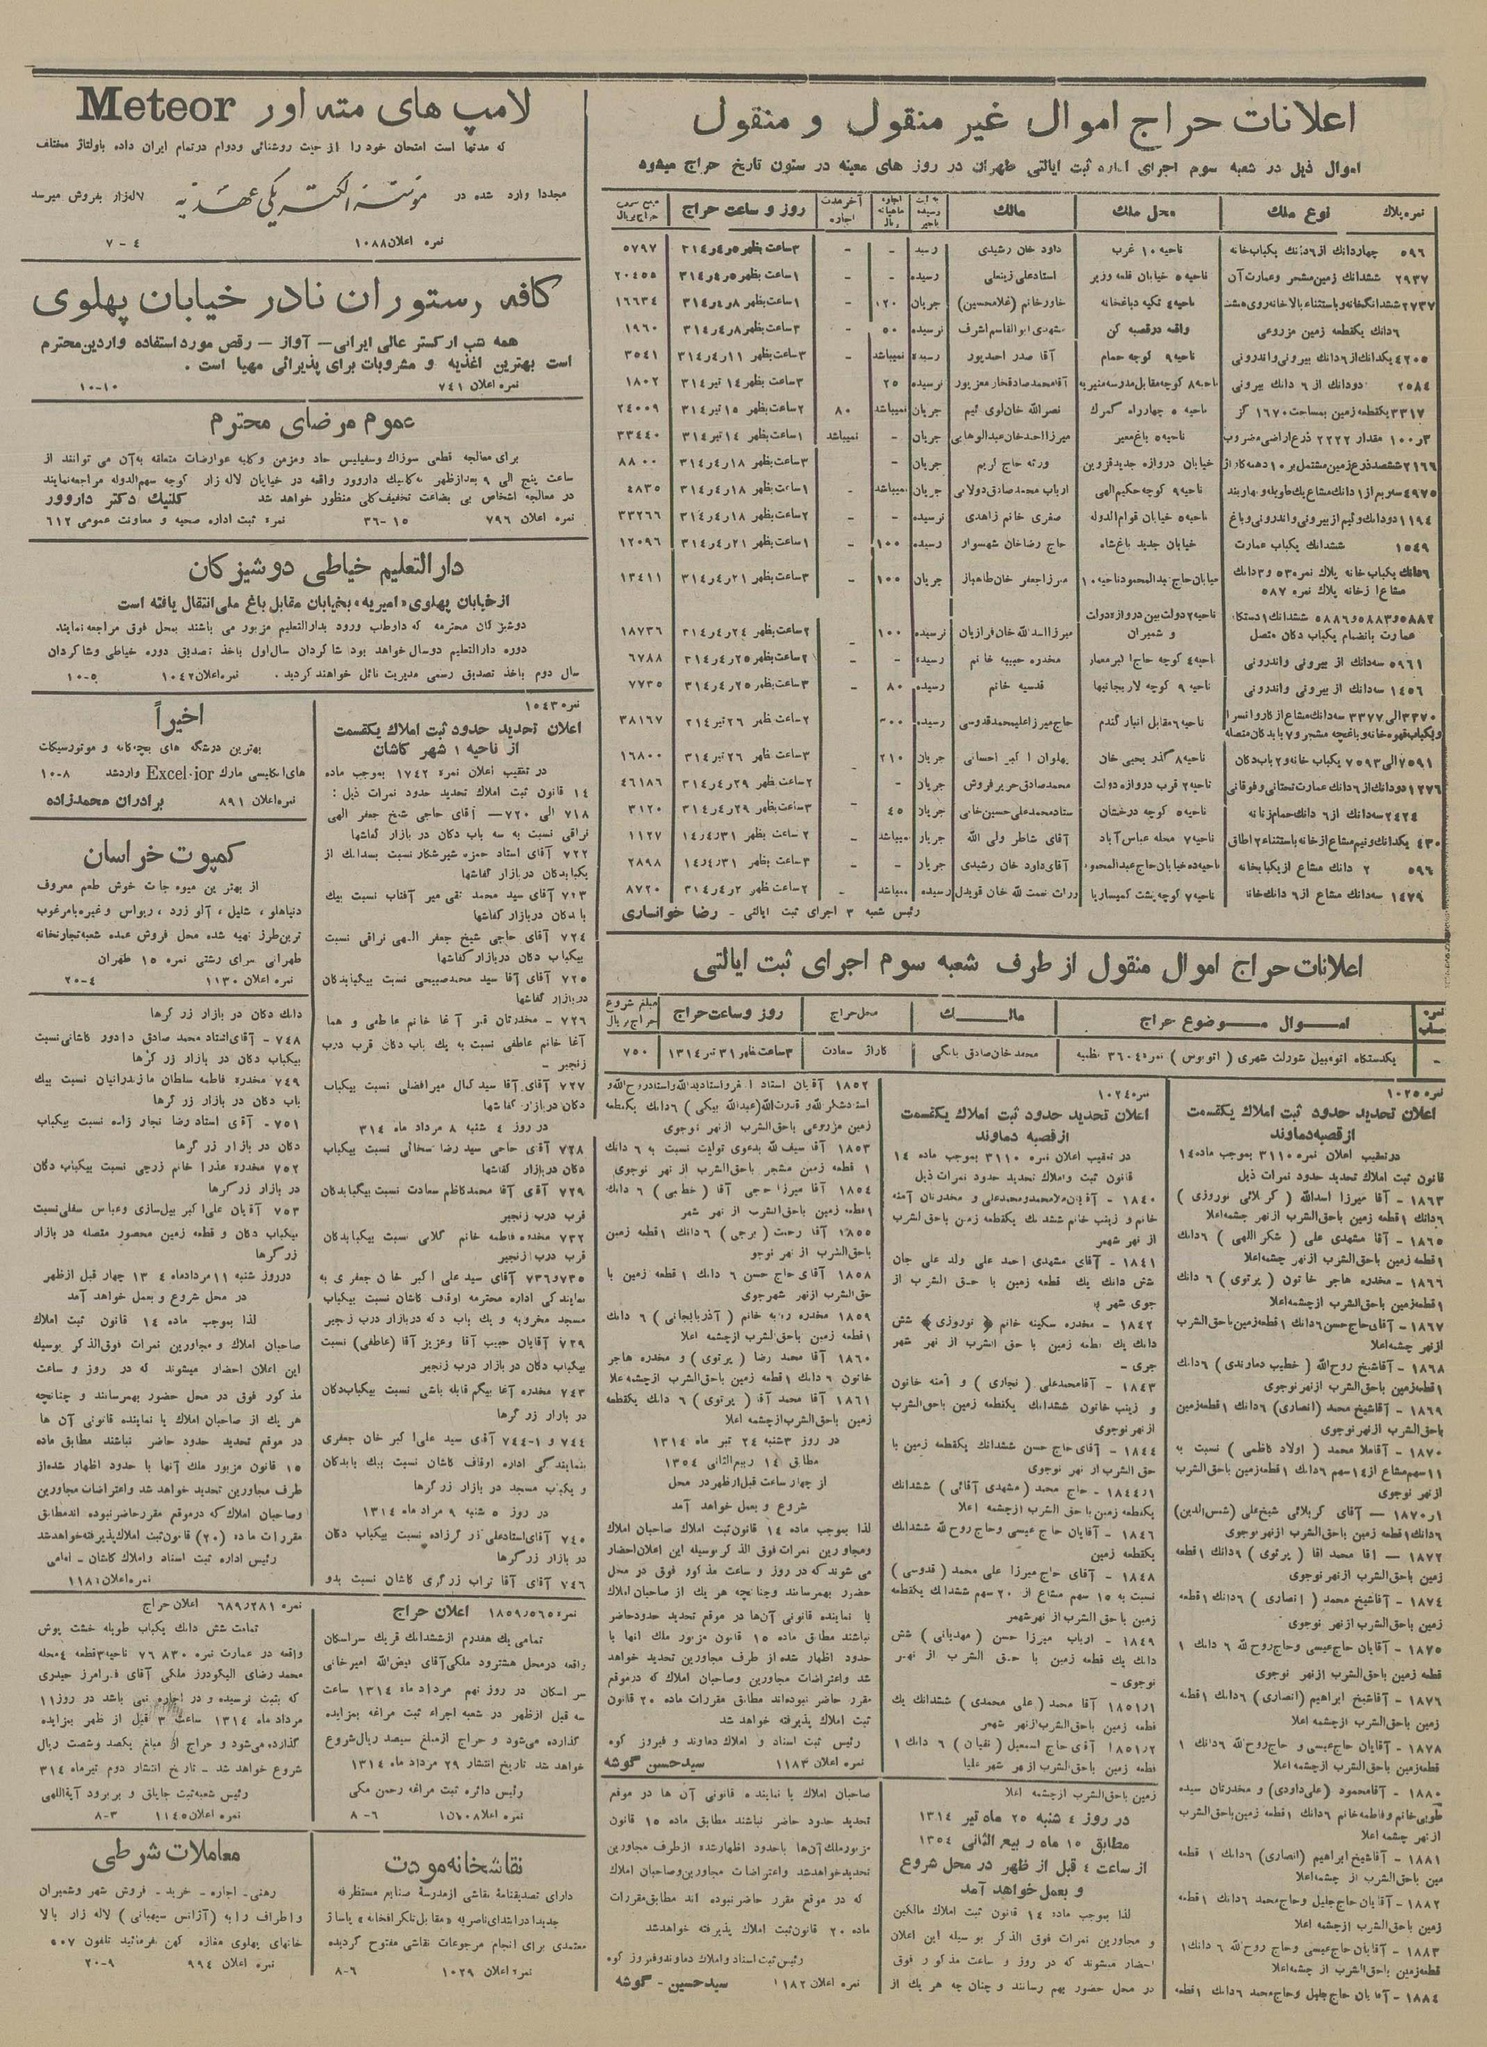 اعلانات حراج اموال غیر منقول و منقول
اموال ذیل در شعبه سوم اجرای اداره ثبت ایالتی طهران در روز های معینه در ستون تاریخ حراج میشود
نمره پلاک نوع ملك محل ملك مالك روز و ساعت حراج
۵۹۶ چهاردانك از ۶دانك یکبابخانه ناحیه ۱۰ غرب داود خان رشیدی رسید - - ۳ساعت بظهر ۵ر۴ر۳۱۴ ۵۷۹۷
۲۹۳۷ ششدانك زمین مشجر وعمارت آن ناحیه ۵ خیابان قلعه وزیر استادعلی زینعلی رسیده - - ۱ساعت بظهر ۵ر۴ر۳۱۴ ۲۰۴۵۵
۲۷۳۷ ششدانگخانه وباستثناء بالاخانه روی هشت ناحیه ۴ تکیه دباغخانه خاورخانم (غلامحسین) جریان ۱۲۰ - ۱ساعت بظهر ۸ر۴ر۳۱۴ ۱۶۶۳۴
۶دانك یکقطعه زمین مزروعی واقعه درقصبه کن مشهدی ابوالقاسم اشرف نرسیده ۵۰ - ۳ساعت بظهر ۸ر۴ر۳۱۴ ۱۹۶۰
۴۲۰۵ یکدانك از ۶ دانك بیرونی واندرونی ناحیه ۹ کوچه حمام آقا صدر احمدپور رسیده نمیباشد - ۳ساعت بظهر ۱۱ر۴ر۳۱۴ ۳۵۴۱
۲۵۸۴ دودانك از ۶ دانك بیرونی ناحیه ۸ کوچه مقابل مدرسه منیریه آقامحمدصادقفخار معزپور نرسیده ۲۵ ۳ساعت بظهر ۱۴ تیر ۳۱۴ ۱۸۰۲
۳۳۱۷ یکقطعه زمین بمساحت ۱۶۷۰ گز ناحیه ۵ چهارراه گمرك نصرالله خان لوی ئیم جریان نمیباشد ۸۰ ۲ساعت بظهر ۱۵ تیر ۳۱۴ ۲۴۰۰۹
۳ر۱۰۰ مقدار ۲۲۲۲ ذرع اراضی مضروب ناحیه ۵ باغ معیر میرزااحمدخان عبدالوهابی جریان - نمیباشد ۱ساعت بظهر ۱۴ تیر ۳۱۴ ۳۳۴۴۰
۲۱۶۶ ششصدذرع زمین مشتمل بر ۱۰ دهنه کاراژ خیابان دروازه جدیدقزوین ورثه حاج کریم جریان - ۳ساعت بظهر ۱۸ر۴ر۳۱۴ ۸۸۰۰
۴۹۷۵ سه ربع از ۱ دانك مشاع یك طویله و بهاربند ناحیه ۹ کوچه حکیم الهی ارباب محمدصادق دولابی جریان نمیباشد - ۱ساعت بظهر ۱۸ر۴ر۳۱۴ ۴۸۳۵
۱۱۹۴ دودانك ونیم از بیرونی واندرونی وباغ ناحیه ۵ خیابان قوام الدوله صغری خانم زاهدی نرسیده - - ۲ساعت بظهر ۱۸ر۴ر۳۱۴ ۳۳۲۶۶
۱۵۴۹ ششدانك یکباب عمارت خیابان جدید باغ شاه حاج رضاخان شهسوار رسیده ۱۰۰ - ۱ساعت بظهر ۲۱ر۴ر۳۱۴ ۱۲۰۹۶
۶دانك یکباب خانه پلاك نمره ۵۳ و ۳دانك مشاع از خانه پلاك نمره ۵۸۷ خیابان حاج عبدالمحمود ناحیه ۱۰ میرزاجعفر خان طاهباز جریان ۱۰۰ - ۳ساعت بظهر ۲۱ر۴ر۳۱۴ ۱۳۴۱۱
۵۸۸۲و۵۸۸۳و۵۸۸۶ ششدانك ۱دستگاه عمارت بانضمام یکباب دکان متصل ناحیه ۲ دولت بین دروازه دولت و شمیران میرزااسدالله خان فرازیان نرسیده ۱۰۰ - ۲ساعت بظهر ۲۴ر۴ر۳۱۴ ۱۸۷۳۶
۵۹۶۱ سه دانك از بیرونی واندرونی ناحیه ۴ کوچه حاج اکبر معمار مخدره حبیبه خانم رسیده - - ۲ساعت بظهر ۲۵ر۴ر۳۱۴ ۶۷۸۸
۱۴۵۶ سه دانك از بیرونی واندرونی ناحیه ۹ کوچه لاریجانیها قدسیه خانم رسیده ۸۰ - ۳ساعت بظهر ۲۵ر۴ر۳۱۴ ۷۷۳۵
۳۳۷۰ الی ۳۳۷۷ سه دانك مشاع از کاروانسرا ویکباب قهوه خانه و باغچه مشجر و ۷ باب دکان متصله ناحیه ۶ مقابل انبار گندم حاج میرزاعلیمحمدقدوسی رسیده ۳۰۰ - ۲ساعت ظهر ۲۶ تیر ۳۱۴ ۳۸۱۶۷
۷۵۹۱ الی ۷۵۹۳ یکباب خانه و ۲ باب دکان ناحیه ۸ گذر یحیی خان پهلوان اکبر احسانی جریان ۲۱۰ - ۳ساعت ظهر ۲۶ تیر ۳۱۴ ۱۶۸۰۰
۱۲۷۶ دودانك از ۶دانك عمارت تحتانی و فوقانی ناحیه ۲ قرب دروازه دولت محمدصادق حریرفروش جریان - - ۲ساعت ظهر ۲۹ر۴ر۳۱۴ ۴۶۱۸۶
۲۴۲۴ سه دانك از ۶ دانك حمام زنانه ناحیه ۵ کوچه درخشان استادمحمدعلی حسین خانی جریان ۴۵ - ۳ساعت بظهر ۲۹ر۴ر۳۱۴ ۳۱۲۰
۴۳۰ یکدانك ونیم مشاع از خانه باستثناء ۲ اطاق ناحیه ۷ محله عباس آباد آقای شاطر ولی الله جریان نمیباشد - ۲ساعت بظهر ۳۱ر۴ر۱۴ ۱۱۲۷
۵۹۶ ۲ دانك مشاع از یکبابخانه ناحیه ۱۰ خیابان حاج عبدالمحمود آقای داود خان رشیدی جریان - - ۳ساعت بظهر ۳۱ر۴ر۱۴ ۲۸۹۸
۱۴۷۹ سه دانك مشاع از ۶ دانك خانه ناحیه ۷ کوچه پشت کمیساریا وراث نعمت الله خان قویدل رسیده نمیباشد - ۲ساعت ظهر ۲ر۴ر۳۱۴ ۸۷۲۰
رئیس شعبه ۳ اجرای ثبت ایالتی - رضا خوانساری
اعلانات حراج اموال منقول از طرف شعبه سوم اجرای ثبت ایالتی
اموال موضوع حراج مالك محل حراج روز وساعت حراج مبلغ شروع حراج بریال
- یکدستگاه اتومبیل شورلت شهری (اتوبوس) نمره ۳۶۰۴ نظمیه محمدخان صادق بانکی کاراژ سعادت ۳ساعت بظهر ۳۱ تیر ۱۳۱۴ ۷۵۰
نمره ۱۰۲۵
اعلان تحدید حدود ثبت املاك یکقسمت
از قصبه دماوند
درتعقیب اعلان نمره ۳۱۱۰ بموجب ماده ۱۴
قانون ثبت املاك تحدید حدود نمرات ذیل
۱۸۶۳ - آقا میرزا اسدالله (کربلائی نوروزی)
۶دانك ۱قطعه زمین باحق الشرب ازنهر چشمه اعلا
۱۸۶۵ - آقا مشهدی علی (شکر اللهی) ۶دانك
۱قطعه زمین باحق الشرب ازنهر چشمه اعلا
۱۸۶۶ - مخدره هاجر خاتون (پرتوی) ۶ دانك
۱قطعه زمین باحق الشرب ازچشمه اعلا
۱۸۶۷ - آقای حاج حسن ۶دانك ۱قطعه زمین باحق الشرب
ازنهر چشمه اعلا
۱۸۶۸ - آقاشیخ روح الله (خطیب دماوندی) ۶دانك
۱قطعه زمین باحق الشرب ازنهر نوجوی
۱۸۶۹ - آقاشیخ محمد (انصاری) ۶دانك ۱قطعه زمین
باحق الشرب ازنهر نوجوی
۱۸۷۰ - آقاملا محمد (اولاد کاظمی) نسبت به
۱۱سهم مشاع از ۱۴سهم ۶دانك ۱قطعه زمین باحق الشرب
ازنهر نوجوی
۱ر۱۸۷۰ — آقای کربلائی شیخ علی (شمس الدین)
۶دانك ۱قطعه زمین باحق الشرب ازنهر نوجوی
۱۸۷۲ — آقا محمد آقا (پرتوی) ۶دانك ۱قطعه
زمین باحق الشرب ازنهر نوجوی
۱۸۷۴ - آقاشیخ محمد (انصاری) ۶دانك ۱قطعه
زمین باحق الشرب ازنهر نوجوی
۱۸۷۵ - آقایان حاج عیسی وحاج روح الله ۶ دانك ۱
قطعه زمین باحق الشرب ازنهر نوجوی
۱۸۷۶ - آقاشیخ ابراهیم (انصاری) ۶دانك ۱قطعه
زمین باحق الشرب ازچشمه اعلا
۱۸۷۸ - آقایان حاج عیسی و حاج روح الله ۶ دانك ۱
قطعه زمین باحق الشرب ازچشمه اعلا
۱۸۸۰ - آقامحمود (علی داودی) و مخدرتان سیده
طوبی خانم وفاطمه خانم ۶دانك ۱قطعه زمین باحق الشرب
ازنهر چشمه اعلا
۱۸۸۱ - آقاشیخ ابراهیم (انصاری) ۶دانك ۱ قطعه
مین باحق الشرب از چشمه اعلا
۱۸۸۲ - آقایان حاج جلیل وحاج محمد ۶دانك ۱قطعه
زمین باحق الشرب ازچشمه اعلا
۱۸۸۳ - آقایان حاج عیسی وحاج روح الله ۶ دانك ۱
قطعه زمین باحق الشرب از چشمه اعلا
۱۸۸۴ - آقایان حاج جلیل وحاج محمد ۶دانك ۱قطعه
نمره ۱۰۲۴
اعلان تحدید حدود ثبت املاك یکقسمت
ازقصبه دماوند
در تعقیب اعلان نمره ۳۱۱۰ بموجب ماده ۱۴
قانون ثبت واملاك تحدید حدود نمرات ذیل
۱۸۴۰ - آقایان ملامحمدومحمدعلی و مخدرتان آمنه
خانم و زینب خانم ششدانك یکقطعه زمین باحق الشرب
از نهر شهر
۱۸۴۱ - آقای مشهدی احمد علی ولد علی جان
شش دانك یك قطعه زمین با حق الشرب از
جوی شهر
۱۸۴۲ - مخدره سکینه خانم (نوروزی) شش
دانك یك قطعه زمین با حق الشرب از نهر شهر
جوی -
۱۸۴۳ - آقامحمدعلی (نجاری) و آمنه خاتون
و زینب خاتون ششدانك یکقطعه زمین باحق الشرب
ازنهر نوجوی
۱۸۴۴ - آقای حاج حسن ششدانك یکقطعه زمین با
حق الشرب از نهر نوجوی
۱ر۱۸۴۴ - حاج محمد (مشهدی آقائی) ششدانك
یکقطعه زمین باحق الشرب ازچشمه اعلا
۱۸۴۶ - آقایان حاج عیسی وحاج روح الله ششدانك
یکقطعه زمین
۱۸۴۸ - آقای حاج میرزا علی محمد (قدوسی)
نسبت به ۱۵ سهم مشاع از ۲۰ سهم ششدانك یکقطعه
زمین باحق الشرب از نهر شهر
۱۸۴۹ - ارباب میرزا حسن (مهدیانی) شش
دانك یك قطعه زمین با حق الشرب از نهر
نوجوی -
۱ر۱۸۵۱ آقا محمد (علی محمدی) ششدانك یك
قطعه زمین باحق الشرب ازنهر شهر
۲ر۱۸۵۱ آقای حاج اسمعیل (تقیان) ۶ دانك ۱
قطعه زمین باحق الشرب ازنهر شهر علیا
زمین باحق الشرب ازچشمه اعلا
در روز ۴ شنبه ۲۵ ماه تیر ۱۳۱۴
مطابق ۱۵ ماه ربیع الثانی ۱۳۵۴
از ساعت ۴ قبل از ظهر در محل شروع
و بعمل خواهد آمد
لذا بموجب ماده ۱۴ قانون ثبت املاك مالکین
و مجاورین نمرات فوق الذکر بوسیله این اعلان
احضار میشوند که در روز و ساعت مذکور فوق
در محل حضور بهم رسانند و چنان چه هر یك از
۱۸۵۲ آقایان استاد اکبر واستادیدالله واستادروح الله و
استادشکرالله و قدرت الله (عبدالله بیکی) ۶دانك یکقطعه
زمین مزروعی باحق الشرب ازنهر نوجوی
۱۸۵۳ آقا سیف الله بدعوی تولیت نسبت به ۶ دانك
۱ قطعه زمین مشجر باحق الشرب از نهر نوجوی
۱۸۵۴ آقا میرزا حجی آقا (خطیبی) ۶ دانك
۱قطعه زمین باحق الشرب از نهر شهر
۱۸۵۵ آقا رحمت (برجی) ۶دانك ۱قطعه زمین
باحق الشرب از نهر نوجو
۱۸۵۸ آقای حاج حسن ۶ دانك ۱ قطعه زمین با
حق الشرب از نهر شهرجوی
۱۸۵۹ مخدره رقیه خانم (آذربایجانی) ۶ دانك
۱قطعه زمین باحق الشرب ازچشمه اعلا
۱۸۶۰ آقا محمد رضا (پرتوی) و مخدره هاجر
خاتون ۶ دانك ۱قطعه زمین باحق الشرب ازچشمه اعلا
۱۸۶۱ آقا محمد آقا (پرتوی) ۶ دانك یکقطعه
زمین باحق الشرب ازچشمه اعلا
در روز ۳شنبه ۲۴ تیر ماه ۱۳۱۴
مطابق ۱۴ ربیع الثانی ۱۳۵۴
از چهارساعت قبل ازظهردر محل
شروع و بعمل خواهد آمد
لذا بموجب ماده ۱۴ قانون ثبت املاك صاحبان املاك
ومجاورین نمرات فوق الذکر بوسیله این اعلان احضار
می شوند که در روز و ساعت مذکور فوق در محل
حضور بهمرسانند وچنانچه هر یك از صاحبان املاك
یا نماینده قانونی آن ها در موقع تحدید حدودحاضر
نباشند مطابق ماده ۱۵ قانون مزبور ملك آنها با
حدود اظهار شده از طرف مجاورین تحدید خواهد
شد واعتراضات مجاورین وصاحبان املاك که درموقع
مقرر حاضر نبوده اند مطابق مقررات ماده ۲۰ قانون
ثبت املاك پذیرفته خواهد شد
رئیس ثبت اسناد و املاك دماوند و فیروز کوه
نمره اعلان ۱۱۸۳ سیدحسن گوشه
صاحبان املاك یا نماینده قانونی آن ها در موقع
تحدید حدود حاضر نباشند مطابق ماده ۱۵ قانون
مزبور ملك آن ها باحدود اظهارشده ازطرف مجاورین
تحدیدخواهدشد واعتراضات مجاورین وصاحبان املاك
که در موقع مقرر حاضرنبوده اند مطابق مقررات
ماده ۲۰ قانون ثبت املاك پذیرفته خواهدشد
رئیس ثبت اسناد واملاك دماوندوفیروز کوه
نمره اعلان ۱۱۸۲ سیدحسین - گوشه
لامپ های مته اور Meteor
که مدتها است امتحان خود را از حیث روشنائی ودوام درتمام ایران داده باولتاژ مختلف
مجددا وارد شده در مؤسسه الکتریکی عهدیه لاله زار بفروش میرسد
نمره اعلان ۱۰۸۸ ۴ - ۷
کافه رستوران نادر خیابان پهلوی
همه شب ارکستر عالی ایرانی - آواز - رقص مورد استفاده واردین محترم
است بهترین اغذیه و مشروبات برای پذیرائی مهیا است .
نمره اعلان ۷۴۱ ۱۰-۱۰
عموم مرضای محترم
برای معالجه قطعی سوزاك وسفیلیس حاد ومزمن وکلیه عوارضات متعلقه به آن می توانند از
ساعت پنج الی ۹ بعدازظهر به کلینیك داروور واقعه در خیابان لاله زار کوچه سهم الدوله مراجعه نمایند
در معالجه اشخاص بی بضاعت تخفیف کلی منظور خواهد شد کلنیك دکتر داروور
نمره اعلان ۷۹۶ ۱۵ -۳۶ نمره ثبت اداره صحیه و معاونت عمومی ۶۱۲
دارالتعلیم خیاطی دوشیزکان
از خیابان پهلوی «امیریه» بخیابان مقابل باغ ملی انتقال یافته است
دوشیزکان محترمه که داوطلب ورود بدارالتعلیم مزبور می باشند بمحل فوق مراجعه نمایند
دوره دارالتعلیم دوسال خواهد بود شاکردان سال اول باخذ تصدیق دوره خیاطی وشاکردان
سال دوم باخذ تصدیق رسمی مدیریت نائل خواهند کردید . نمره اعلان ۱۰۴۲ ۵-۱۰
نمره ۱۵۴۳
اعلان تحدید حدود ثبت املاك یکقسمت
از ناحیه ۱ شهر کاشان
در تعقیب اعلان نمره ۱۷۴۲ بموجب ماده
۱۴ قانون ثبت املاك تحدید حدود نمرات ذیل :
۷۱۸ الی ۷۲۰ — آقای حاجی شیخ جعفر الهی
نراقی نسبت به سه باب دکان در بازار کفاشها
۷۲۲ آقای استاد حمزه شیرشکار نسبت بسدانك از
یکبابدکان دربازار کفاشها
۷۱۳ آقای سید محمد تقی میر آفتاب نسبت بیك
بابدکان دربازار کفاشها
۷۲۴ آقای حاجی شیخ جعفر الهی نراقی نسبت
بیکباب دکان دربازار کفاشها
۷۲۵ آقای آقا سید محمدصبیحی نسبت بیکبابدکان
دربازار کفاشها
۷۲۶ - مخدرتان قمر آغا خانم عاطفی و هما
آغا خانم عاطفی نسبت به یك باب دکان قرب درب
زنجیر -
۷۲۷ آقای آقا سیدکمال میرافضلی نسبت بیکباب
دکان دربازار کفاشها
در روز ۴ شنبه ۸ مرداد ماه ۳۱۴
۷۲۸ آقای حاجی سید رضا سخائی نسبت بیکباب
دکان دربازار کفاشها
۷۲۹ آقای آقا محمدکاظم سعادت نسبت بیکبابدکان
قرب درب زنجیر
۷۳۲ مخدره فاطمه خانم گلابی نسبت بیکبابدکان
قرب درب زنجیر
۷۳۵و۷۳۶ آقای سید علی اکبر خان جعفری به
نمایندگی اداره محترمه اوقاف کاشان نسبت بیکباب
مسجد مخروبه و یك باب دکه دربازار درب زنجیر
۷۳۹ آقایان حبیب آقا وعزیز آقا (عاطفی) نسبت
بیکباب دکان در بازار درب زنجیر
۷۴۳ مخدره آغا بیگم قابله باشی نسبت بیکبابدکان
در بازار زرگرها
۷۴۴ و ۱-۷۴۴ آقای سید علی اکبر خان جعفری
بنمایندگی اداره اوقاف کاشان نسبت بیك بابدکان
و یکباب مسجد در بازار زرگرها
در روز ۵ شنبه ۹ مرداد ماه ۱۳۱۴
۷۴۰ آقای استادعلی زرگرزاده نسبت بیکباب دکان
در بازار زرگرها
۷۴۶ آقای آقا تراب زرگری کاشان نسبت بدو
دانك دکان در بازار زرگرها
۷۴۸ - آقای استاد محمد صادق دادور کاشانی نسبت
بیکباب دکان در بازار زرگرها
۷۴۹ مخدره فاطمه سلطان مازندرانیان نسبت بیك
باب دکان در بازار زرگرها
۷۵۱- آقای استاد رضا نجار زاده نسبت بیکباب
دکان در بازار زرگرها
۷۵۲ مخدره عذرا خانم زرجی نسبت بیکباب دکان
در بازار زرگرها
۷۵۳ آقایان علی اکبر بیل سازی وعباس سفلی نسبت
بیکباب دکان و قطعه زمین محصور متصله در بازار
زرگرها
درروز شنبه ۱۱مردادماه ۳۱۴ چهار قبل ازظهر
در محل شروع و بعمل خواهد آمد
لذا بموجب ماده ۱۴ قانون ثبت املاك
صاحبان املاك و مجاورین نمرات فوق الذکر بوسیله
این اعلان احضار میشوند که در روز و ساعت
مذکور فوق در محل حضور بهمرسانند و چنانچه
هر یك از صاحبان املاك یا نماینده قانونی آن ها
در موقع تحدید حدود حاضر نباشند مطابق ماده
۱۵ قانون مزبور ملك آنها با حدود اظهار شده از
طرف مجاورین تحدید خواهد شد واعتراضات مجاورین
وصاحبان املاك که درموقع مقررحاضرنبوده اندمطابق
مقررات ماده (۲۰) قانون ثبت املاك پذیرفته خواهدشد
رئیس اداره ثبت اسناد واملاك کاشان - امامی
نمره اعلان ۱۱۸۱
اخیراً
بهترین درشگه های بچگانه و موتورسیکلت
های انگلیسی مارك Excelsior واردشد ۸-۱۰
نمره اعلان ۸۹۱ برادران محمدزاده
کمپوت خراسان
از بهترین میوه جات خوش طعم معروف
دنیاهلو ، شلیل ، آلو زرد ، ریواس و غیره بامرغوب
ترین طرز تهیه شده محل فروش عمده شعبه تجارتخانه
طهرانی سرای رشتی نمره ۱۵ طهران
نمره اعلان ۱۱۳۰ ۴-۲۰
نمره ۱۸۵۹٫۵۶۵ اعلان حراج
تمامی یك هفدرم ازششدانك قریه سراسکان
واقعه درمحل هشترود ملکی آقای فیض الله امیرخانی
سر اسکان در روز نهم مرداد ماه ۱۳۱۴ ساعت
سه قبل ازظهر در شعبه اجراء ثبت مراغه بمزایده
گذارده میشود و حراج ازمبلغ سیصد ریال شروع
خواهد شد تاریخ انتشار ۲۹ مرداد ماه ۱۳۱۴
رئیس دائره ثبت مراغه رحمن مکی
۶ - ۸
نمره ۶۸۹٫۲۸۱ اعلان حراج
تمامت شش دانك یکباب طویله خشت پوش
واقعه در عمارت نمره ۸۳۰ ۷۶ ناحیه ۳قطعه ۴محله
محمد رضای الیگودرز ملکی آقای فرامرز حیدری
که بثبت نرسیده و در اجاره نمی باشد در روز ۱۱
مرداد ماه ۱۳۱۴ ساعت ۳ قبل از ظهر بمزایده
گذارده میشود و حراج از مبلغ یکصد وشصت ریال
شروع خواهد شد - تاریخ انتشار دوم تیرماه ۳۱۴
رئیس شعبه ثبت جاپلق و بربرود آیةاللهی
نمره اعلان ۱۱۴۵ ۳-۸
نقاشخانه مودت
دارای تصدیقنامهٔ نقاشی ازمدرسهٔ صنایع مستظرفه
جدیدا درابتدای ناصریه «مقابل تلگرافخانه» پاساژ
معتمدی برای انجام مرجوعات نقاشی مفتوح گردیده
نمره اعلان ۱۰۲۹ ۶-۸
معاملات شرطی
رهنی - اجاره - خرید - فروش شهر وشمیران
واطراف رابه (آژانس سپهبانی) لاله زار بالا
خانهای پهلوی مغازه کهن بفرمائید تلفون ۹۰۷
نمره اعلان ۹۹۴ ۹-۲۰